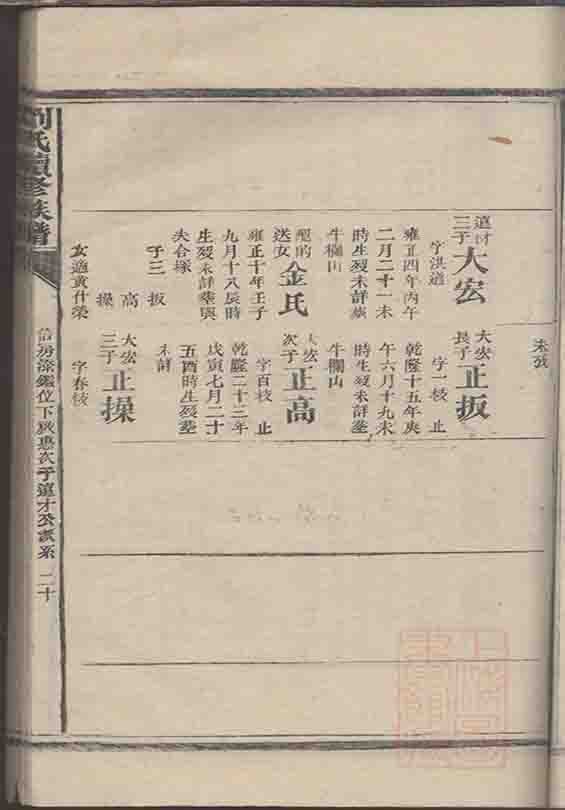 未改
遠材
三子
大宏
字洪道
雍正四年丙午
二月二十一未
時生歿未詳葬
牛欄山
配的
送女
金氏
雍正十年壬子
九月十八辰時
生歿未詳葬與
夫合塚
子三 扳
高
操
女適黄什榮
大宏
長子
正扳
字一枝 止
乾隆十五年庚
午六月十九未
時生歿未詳葬
牛欄山
大宏
次子
正高
字百枝 止
乾隆二十三年
戊寅七月二十
五酉時生歿葬
未詳
大宏
三子
正操
字春枝
劉氏續修族譜
信房 鑑位下 次子遠才公派系 二十